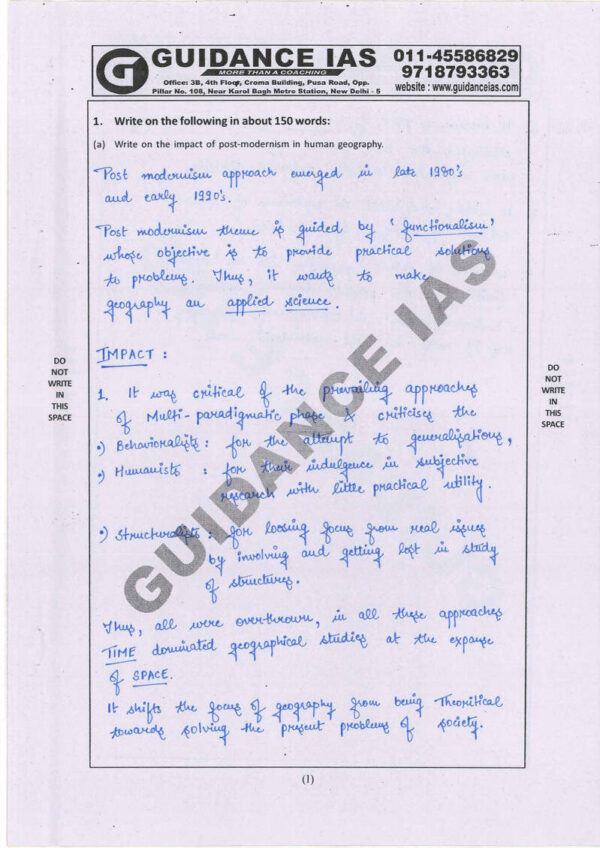 GUIDANCE IAS
MORE THAN A COACHING
Office: 3B, 4th Floor, Croma Building, Pusa Road, Opp.
Pillar No. 108, Near Karol Bagh Metro Station, New Delhi - 5
011-45586829
9718793363
website : www.guidanceias.com
1. Write on the following in about 150 words:
(a) Write on the impact of post-modernism in human geography.
Post modernism approach emerged in late 1980's
and early 1990's.
Post modernism theme is guided by 'functionalism'
whose objective is to provide practical solutions
to problems. Thus, it wants to make
geography an applied science.
IMPACT :
1. It was critical of the prevailing approaches
of Multi-paradigmatic phase & criticises the
•) Behavioralists : for the attempt to generalizations,
•) Humanists : for their indulgence in subjective
research with little practical utility.
•) Structuralists : for loosing focus from real issues
by involving and getting lost in study
of structures.
Thus, all were overthrown, in all these approaches
TIME dominated geographical studies at the expanse
of SPACE.
It shifts the focus of geography from being Theoritical
towards solving the present problems of society.
DO
NOT
WRITE
IN
THIS
SPACE
DO
NOT
WRITE
IN
THIS
SPACE
GUIDANCE IAS
(1)